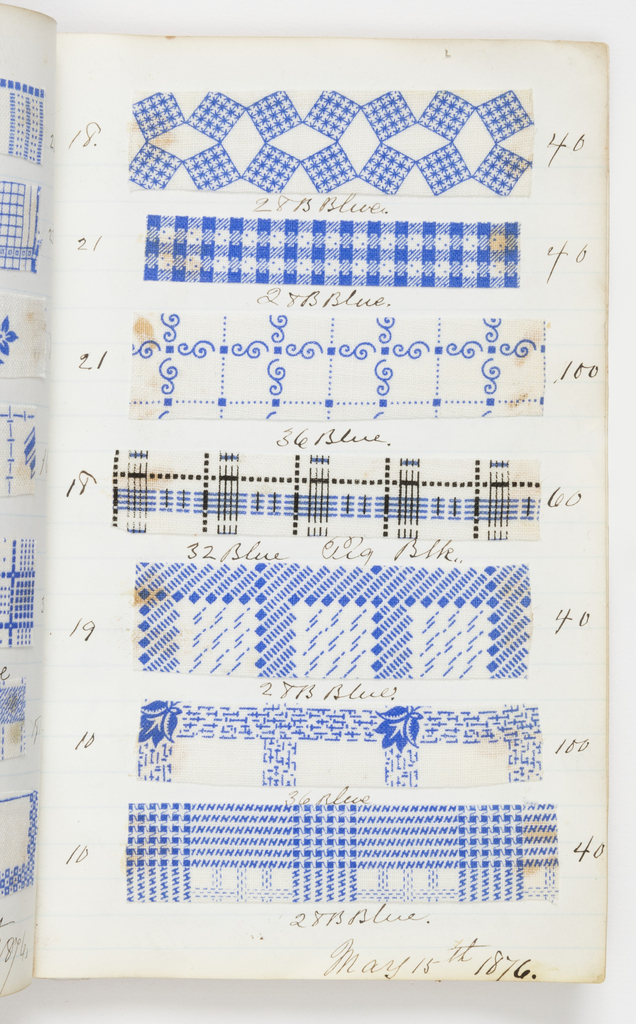 18. 40
28B Blue.
21 40
28B Blue.
21 100
36 Blue.
18 60
32 Blue Blk.
19 40
28B Blue.
10 100
36 Blue
10 40
28B Blue.
May 15th 1876.